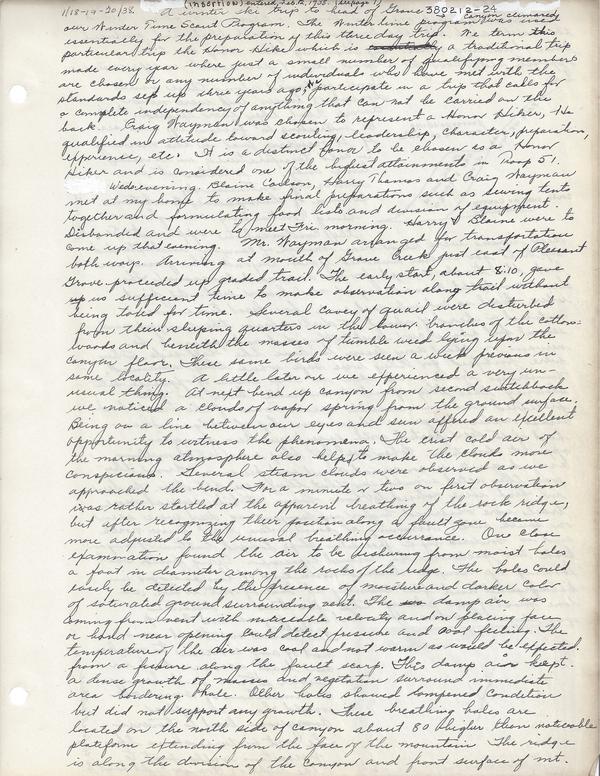 (insertion) entered, Feb. 12, 1938. (see page 1)
1/18-19-20/38. A winter trip to Grove 380212-24
Canyon climaxed
our Winter Time Scout Program. The Winter time program was used
essentially for the preparation of this three day trip. We term this
particular trip the Honor Hike which is a traditional trip
made every year where just a small number of qualifying members
are chosen or any number of individuals who have met with the
standards set up three years ago, to participate in a trip that calls for
a complete independency of anything that can not be carried on the
back. Craig Wayman was chosen to represent a Honor Hiker, He
qualified in attitude toward scouting, leadership, character, preparation,
experience, etc. It is a distinct honor to be chosen as a Honor
Hiker and is considered one of the highest attainments in Troop 51.
Wed. evening. Blaine Coulson, Harry Thomas and Craig Wayman
met at my home to make final preparations such as sewing tents
together and formulating food lists and division of equipment.
Disbanded and were to meet Fri. morning. Harry & Blaine were to
come up that evening. Mr. Wayman arranged for transportation
both ways. Arriving at mouth of Grove Creek just east of Pleasant
Grove proceeded up graded trail. The early start, about 8:10, gave
us sufficient time to make observation along trail without
being tolled for time. Several covey of quail were disturbed
from their sleeping quarters in the lower branches of the cotton-
woods and beneath the masses of tumble weed lying upon the
canyon floor. These same birds were seen a week previous in
same locality. A little later on we experienced a very un-
usual thing. At next bend up canyon from second switchback
we noticed a clouds of vapor spring from the ground surface.
Being on a line between our eyes and sun offered an excellent
opportunity to witness the phenomena. The crist cold air of
the morning atmosphere also helped to make the clouds more
conspicious. Several steam clouds were observed as we
approached the bend. For a minute or two on first observation
was rather startled at the apparent breathing of the rock ridge,
but after recognizing their position along a fault zone became
more adjusted to the unusual breathing occurrance. On close
examination found the air to be ushering from moist holes
a foot in diameter among the rocks of the ridge. The holes could
easily be detected by the presence of moisture and darker color
of saturated ground surrounding vent. The damp air was
coming from vent with noticeable velocity and on placing face
or hand near opening could detect pressure and cool feeling. The
temperature of the air was cool and not warm as would be expected
from a fissure along the fault scarp. This damp air kept
a dense growth of mosses and vegetation surround immediate
area bordering hole. Other holes showed dampened condition
but did not support any growth. These breathing holes are
located on the north side of canyon about 80' higher than noticeable
platform extending from the face of the mountain. The ridge
is along the division of the canyon and front surface of mt.